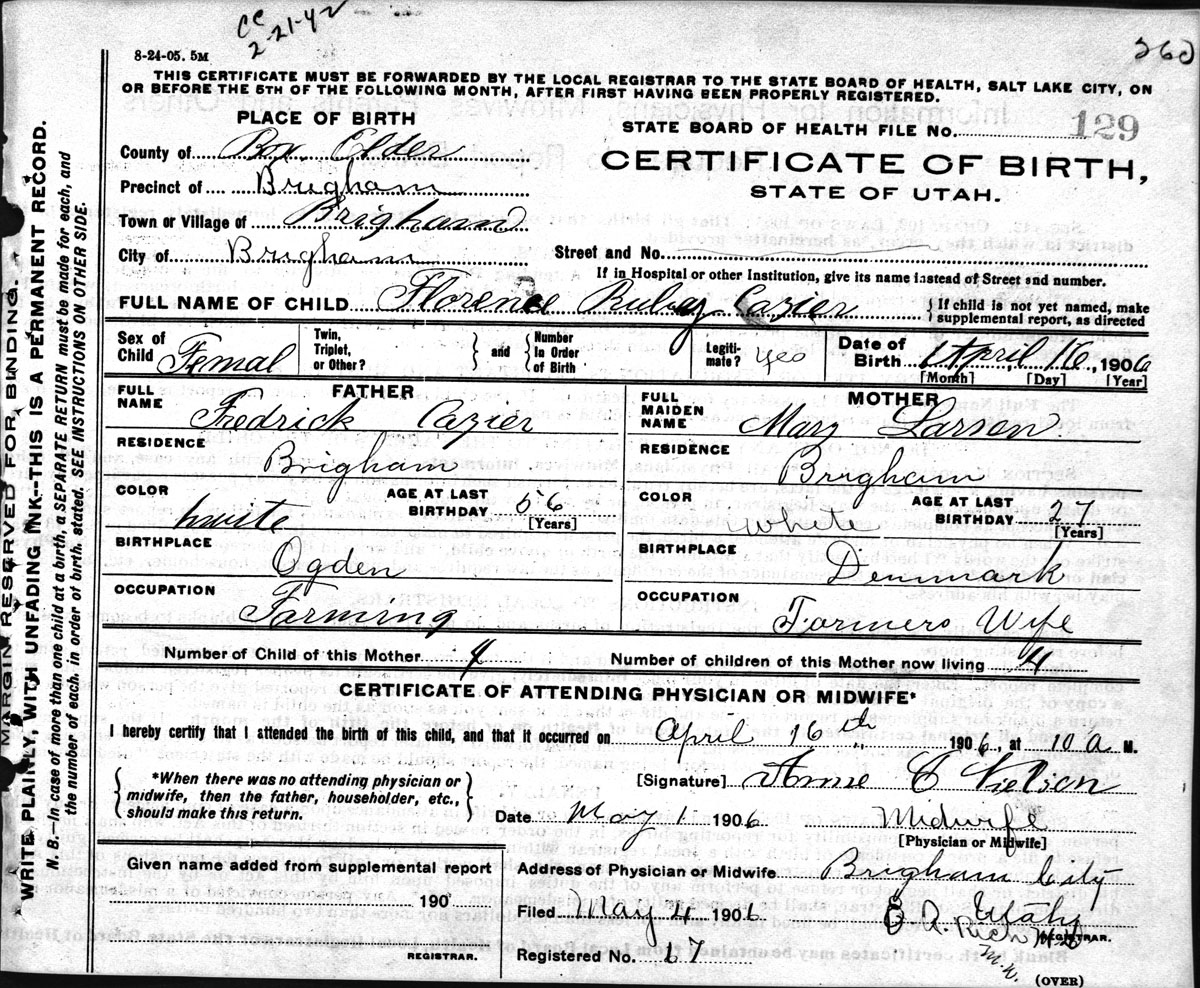 cc
2-21-42
8-24-05. 5M
THIS CERTIFICATE MUST BE FORWARDED BY THE LOCAL REGISTRAR TO THE STATE BOARD OF HEALTH, SALT LAKE CITY, ON
OR BEFORE THE 5TH OF THE FOLLOWING MONTH, AFTER FIRST HAVING BEEN PROPERLY REGISTERED.
PLACE OF BIRTH
STATE BOARD OF HEALTH FILE No. 129
County of Box Elder
CERTIFICATE OF BIRTH,
Precinct of Brigham
STATE OF UTAH.
Town or Village of Brigham
City of Brigham
Street and No.
If in Hospital or other Institution, give its name instead of Street and number.
FULL NAME OF CHILD Florence Ruby Cazier
{If child is not yet named, make
supplemental report, as directed
Sex of Child Femal
Twin, Triplet, or Other? } and { Number In Order of Birth
Legiti-mate? yes
Date of Birth April, 16, 1906
[Month] [Day] [Year]
FATHER
FULL NAME Fredrick Cazier
RESIDENCE Brigham
COLOR white
AGE AT LAST BIRTHDAY 56
[Years]
BIRTHPLACE Ogden
OCCUPATION Farming
MOTHER
FULL MAIDEN NAME Mary Larsen
RESIDENCE Brigham
COLOR White
AGE AT LAST BIRTHDAY 27
[Years]
BIRTHPLACE Denmark
OCCUPATION Farmers Wife
Number of Child of this Mother 4
Number of children of this Mother now living 4
CERTIFICATE OF ATTENDING PHYSICIAN OR MIDWIFE*
I hereby certify that I attended the birth of this child, and that it occurred on April 16th 1906, at 10 a M.
{ *When there was no attending physician or
midwife, then the father, householder, etc.,
should make this return. }
[Signature] Anne C Nielson
Date May 1 1906 Midwife
[Physician or Midwife]
Given name added from supplemental report
190
REGISTRAR.
Address of Physician or Midwife Brigham City
Utah
Filed May 4 1906 A. Rich
REGISTRAR.
Registered No. 67
(OVER)
MARGIN RESERVED FOR BINDING.
WRITE PLAINLY, WITH UNFADING INK.--THIS IS A PERMANENT RECORD.
N. B.--In case of more than one child at a birth, a SEPARATE RETURN must be made for each, and
the number of each. in order of birth. stated. SEE INSTRUCTIONS ON OTHER SIDE.